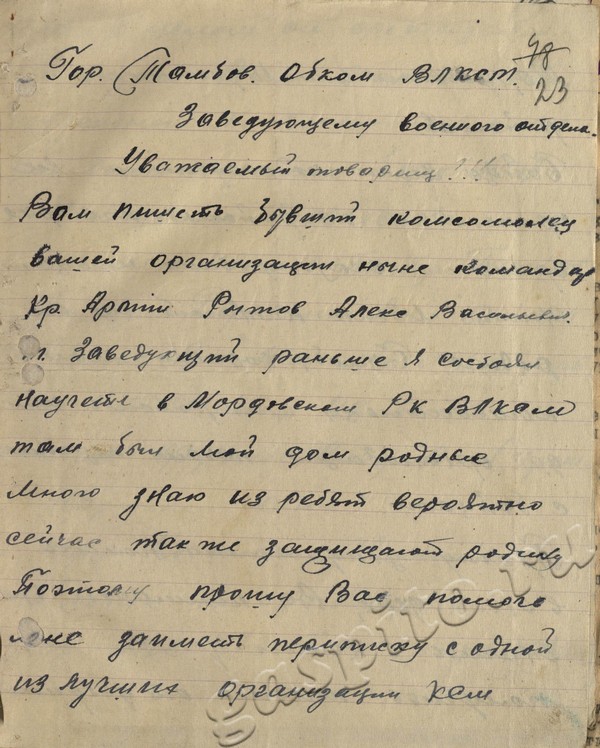 48
23
Гор. Тамбов. Обком ВЛКСМ.
Заведующему военного отдела.
Уважаемый товарищ!!!
Вам пишеть бывший комсомолец
вашей организации ныне командир
Кр. Армии Рытов Алекс Васильевич.
т. Заведующий раньше я состоял
научете в Мордовском Рк ВЛКСМ
там был мой дом родные
много знаю из ребят вероятно
сейчас также защищают родину
Поэтому прошу Вас помочь
мне заиметь переписку с одной
из лучших организации КСМ
gaspito.ru